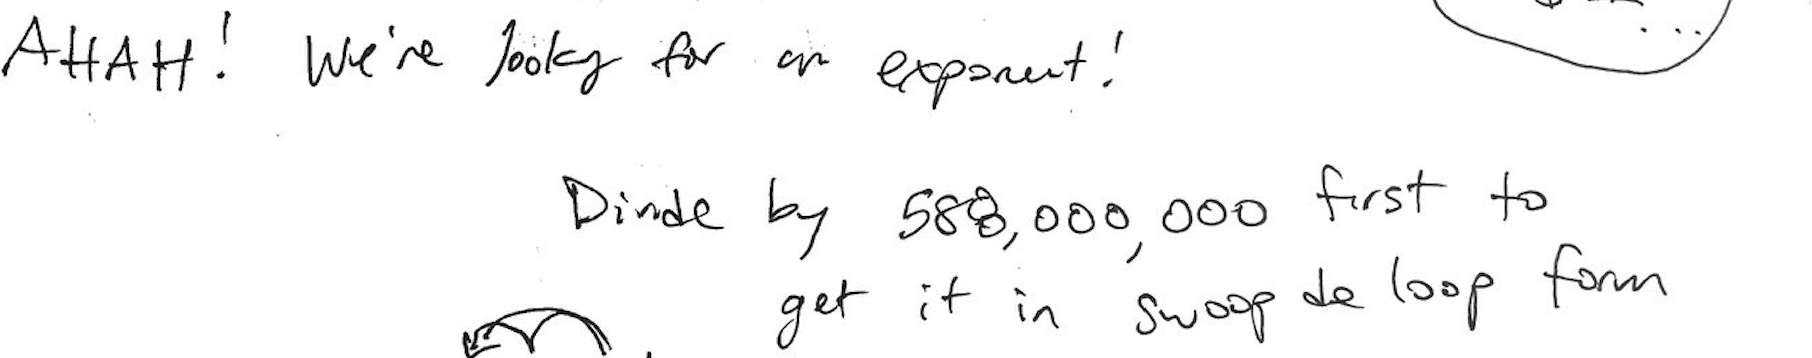 AHAH! We're looking for an exponent!
...
Divide by 588,000,000 first to
get it in swoop de loop form